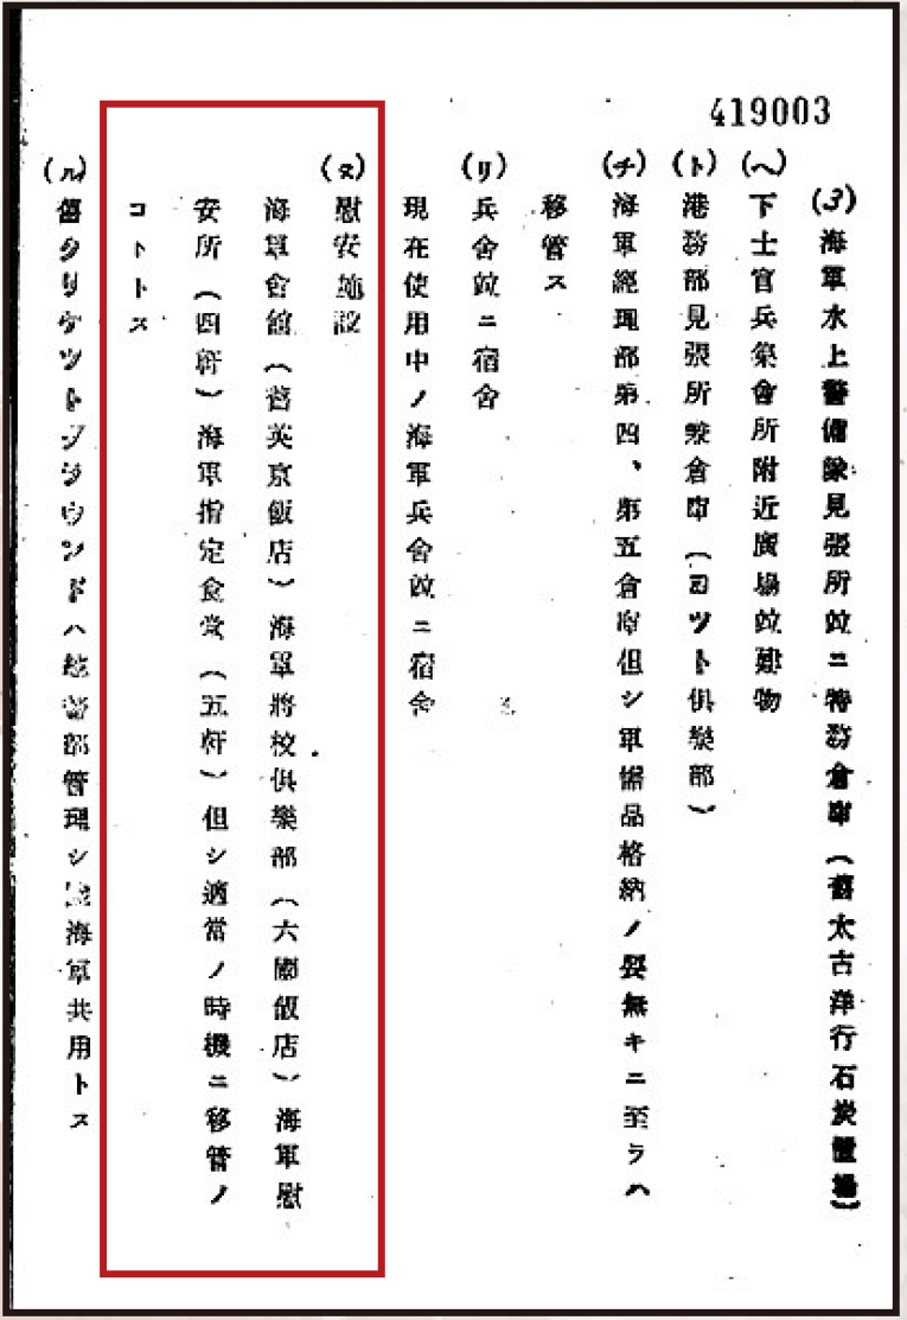 419003
(ヨ)海軍水上警備隊見張所竝ニ特務倉庫（舊太古洋行石炭置場）
(ヘ)下士官兵集會所附近廣場竝建物
(ト)港務部見張所兼倉庫（ヨツト俱樂部）
(チ)海軍經理部第四、第五倉庫但シ軍需品格納ノ要無キニ至ラハ
移管ス
(リ)兵舍竝ニ宿舍
現在使用中ノ海軍兵舍竝ニ宿舍
(ヌ)慰安施設
海軍會館（舊英京飯店）海軍將校俱樂部（六國飯店）海軍慰
安所（四軒）海軍指定食堂（五軒）但シ適當ノ時機ニ移管ノ
コトトス
(ル)舊クリケツトグラウンドハ總督部管理シ陸海軍共用トス